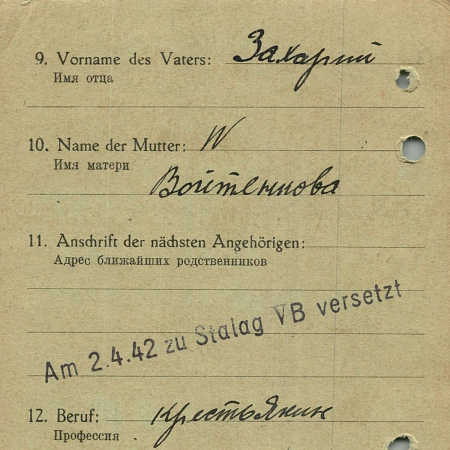 9. Vorname des Vaters: Захарий
Имя отца
10. Name der Mutter: W
Имя матери
Войтенкова
11. Anschrift der nächsten Angehörigen:
Адрес ближайших родственников
Am 2.4.42 zu Stalag VB versetzt
12. Beruf: крестьянин
Профессия